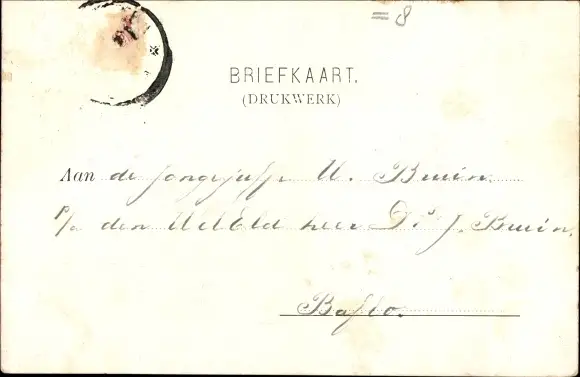 = 8
BRIEFKAART.
(DRUKWERK)
Aan de Jongejuff. U. Bruin.
p/a den WelEd heer Ds. J. Bruin.
Baflo.